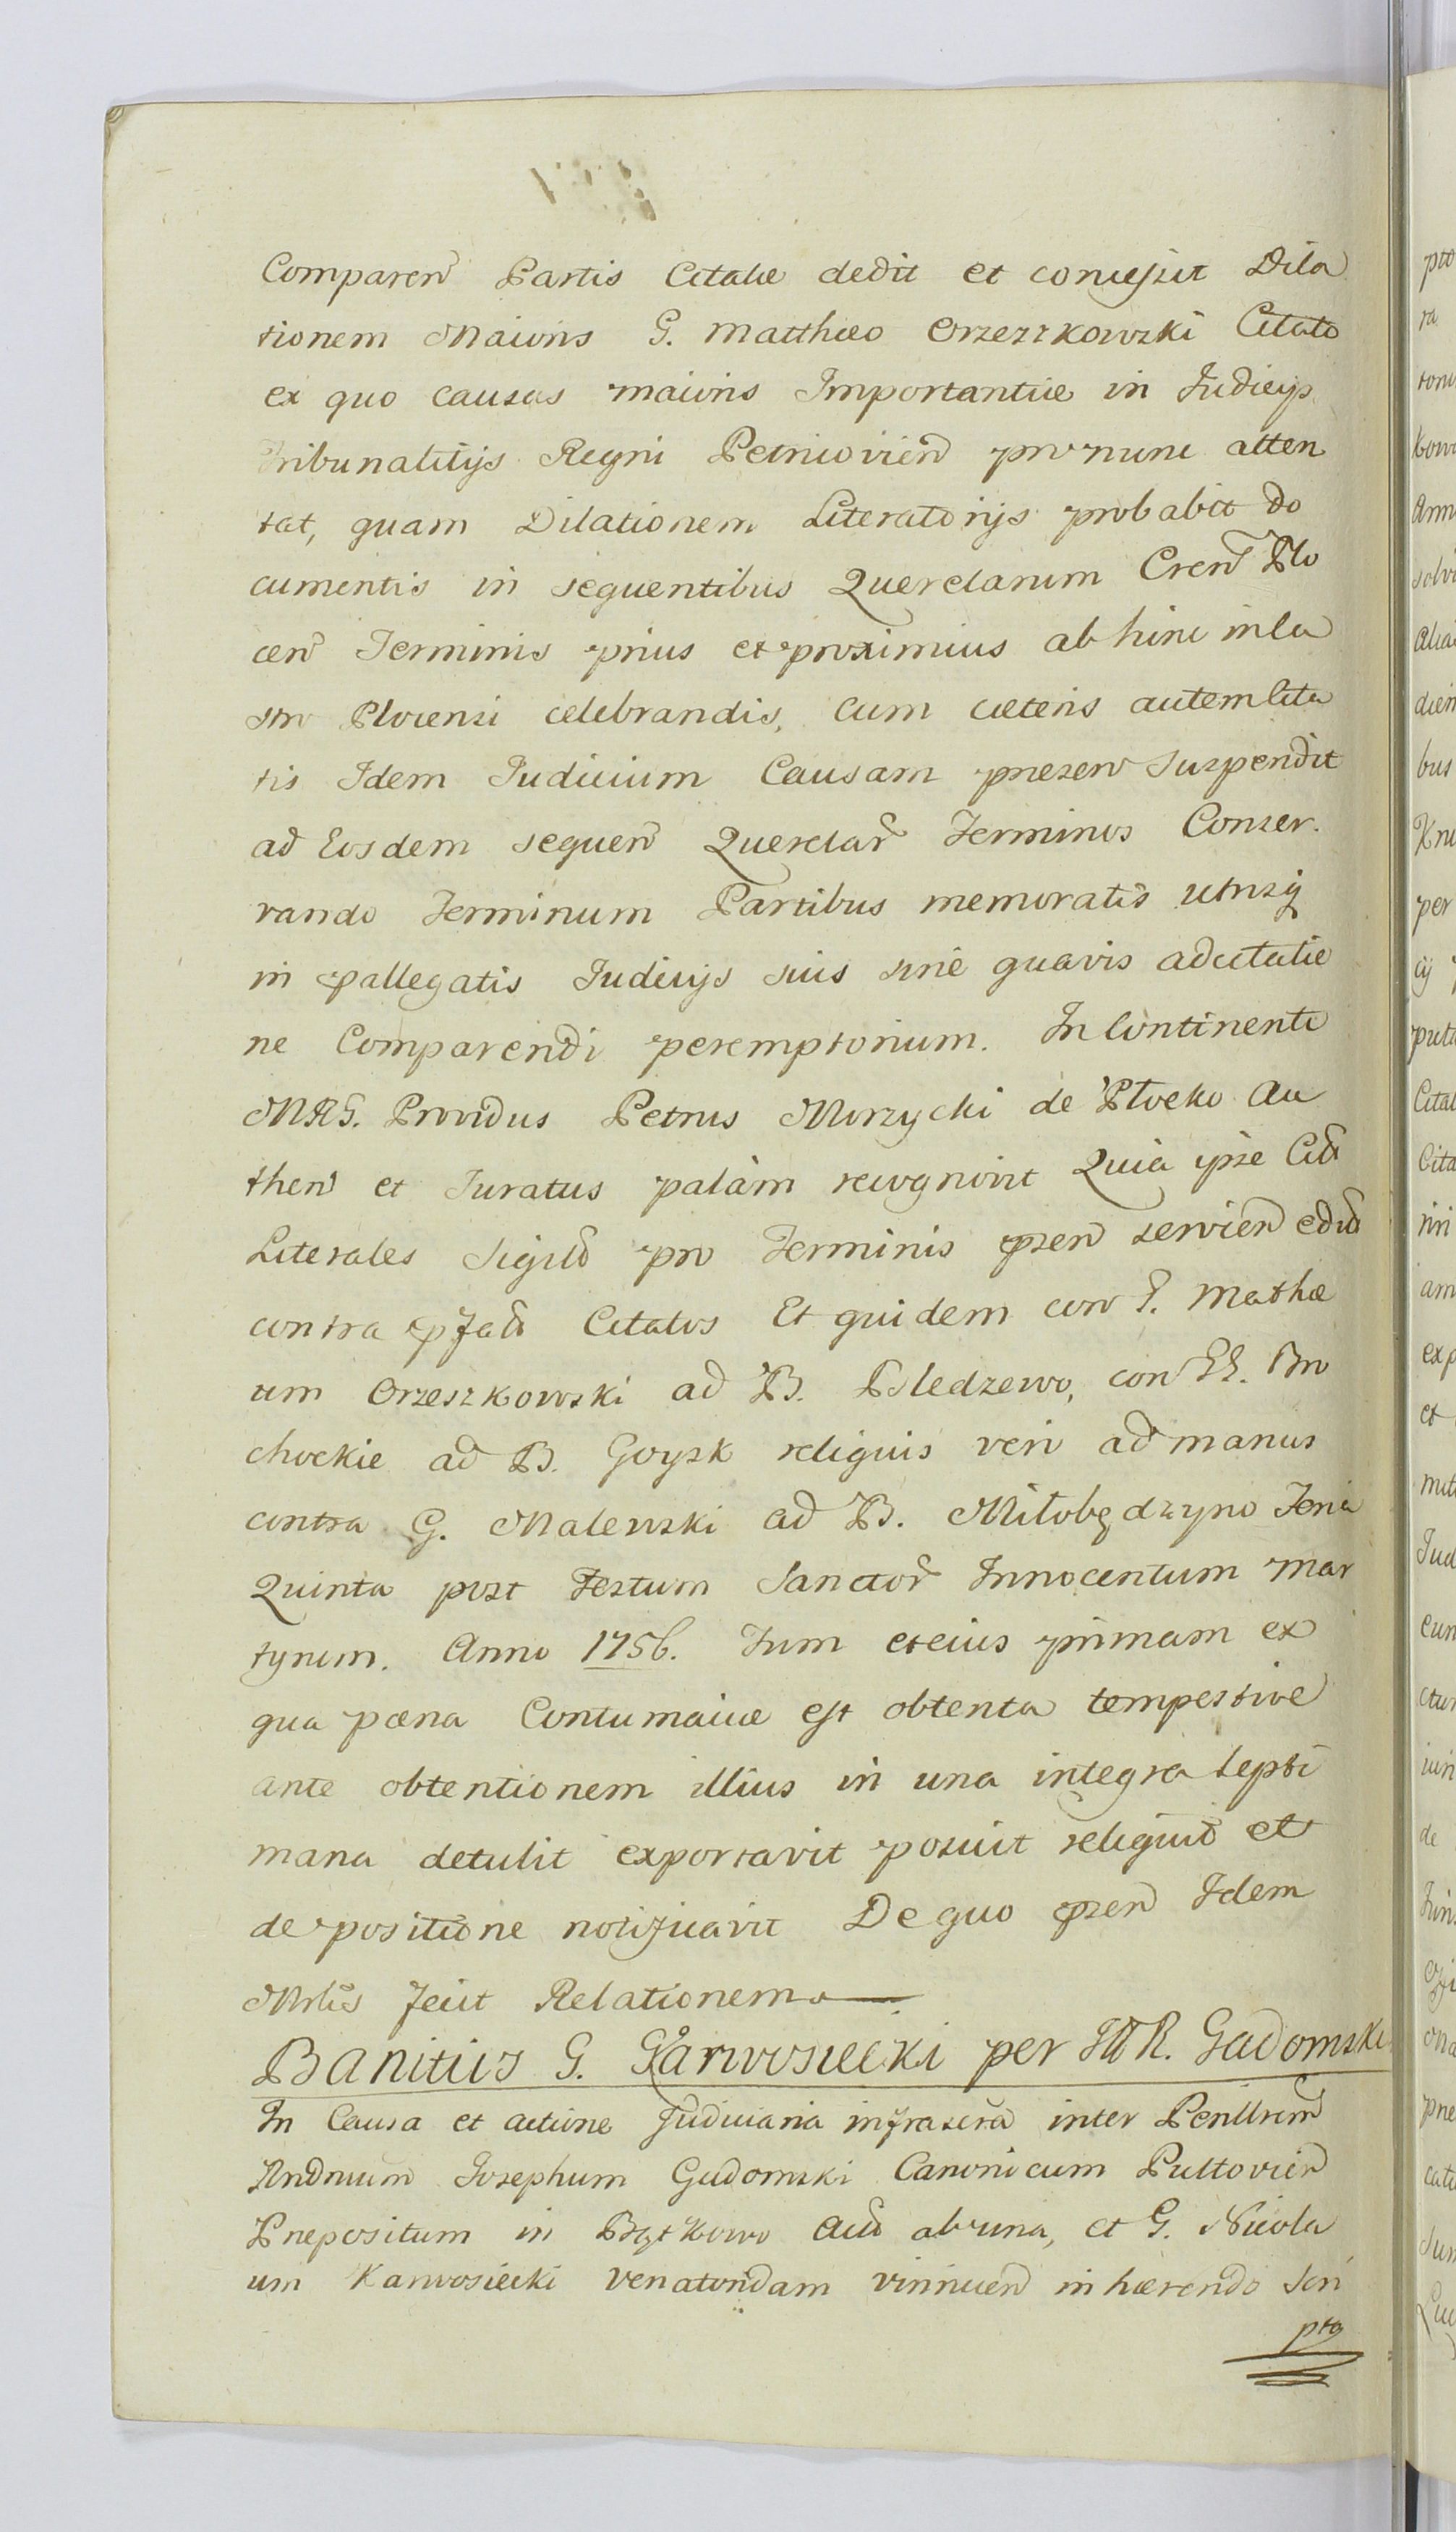 Comparen Partis Citatæ dedit et concessit Dila
tionem Maioris G. Matthæo Orzeszkowski Citato
ex quo causas maioris Importantiæ in Judicijs
Tribunalitijs Regni Petricovien pro nunc atten
tat, quam Dilationem Literatorijs probabit do
cumentis in sequentibus Querelarum Cren Plo
cen Terminis prius et proximius ab hinc in Ca
stro Plocensi celebrandis, cum cæteris autem Cita
tis Idem Judicium Causam præsen Suspendit
ad Eosdem sequen Querelar Terminos Conser.
vando Terminum Partibus memoratis utrisq
in pallegatis Judicijs suis sine quavis adcitatio
ne Comparendi peremptorium. In Continenti
MRG. Providus Petrus Morzycki de Płocko Au
then et Juratus palàm recognovit Quia ipse Citã
Literales Sigilã pro Terminis psen servien edid
contra pfatõ Citatos Et quidem con G. Mathæ
um Orzeszkowski ad B. Sledzewo, con GG. Bro
chockie ad B. Goysk reliquis vero ad manus
contra G. Malewski ad B. Miłobędzyno Feria
Quinta post Festum Sanctor Innocentum Mar
tyrum. Anno 1756. Tum et eius primam ex
qua pæna Contumaciæ est obtenta tempestive
ante obtentionem illius in una integra septi
mana detulit exportavit posuit reliquit et
de positione notificavit De quo psen Idem
Mrlis fecit Relationem
Banitus G. Karwosiecki per IllR. Gadomski
In Causa et actione Judiciaria infrascra inter Perillrem
Rndmum Josephum Gadomski Canonicum Pultovien
Præpositum in Actõ ab una, et G. Nicola
um Karwosiecki venatondam vinnicen inhærendo Scri
pto